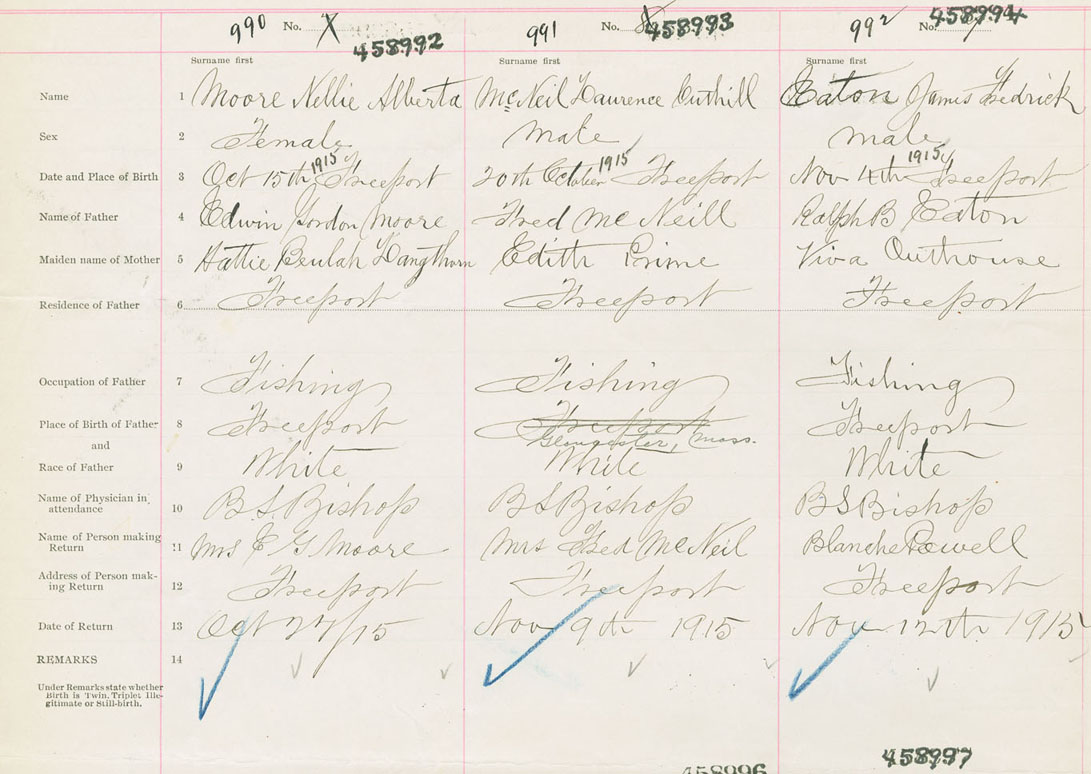 990 No. X 458992 991 No. 8 458993 992 No. 7 458994
Surname first Surname first Surname first
Name 1 Moore Nellie Alberta McNeil Laurence Outhill Eaton James Fedrick
Sex 2 Female male male
1915 1915 1915
Date and Place of Birth 3 Oct 15th Freeport 20th October Freeport Nov 4th Freeport
Name of Father 4 Edwin Gordon Moore Fred McNeill Ralph B Eaton
Maiden name of Mother 5 Hattie Beulah Langthorn Edith Prime Viva Outhouse
Residence of Father 6 Freeport Freeport Freeport
Occupation of Father 7 Fishing Fishing Fishing
Place of Birth of Father 8 Freeport Freeport Freeport
Gloucester, Mass.
and
Race of Father 9 White White White
Name of Physician in
attendance 10 B S Bishop B S Bishop B S Bishop
Name of Person making
Return 11 Mrs E G Moore Mrs Fred McNeil Blanche Powell
Address of Person mak-
ing Return 12 Freeport Freeport Freeport
Date of Return 13 Oct 27/15 Nov 9th 1915 Nov 12th 1915
REMARKS 14
Under Remarks state whether
Birth is Twin, Triplet Ille-
gitimate or Still-birth.
458996 458997